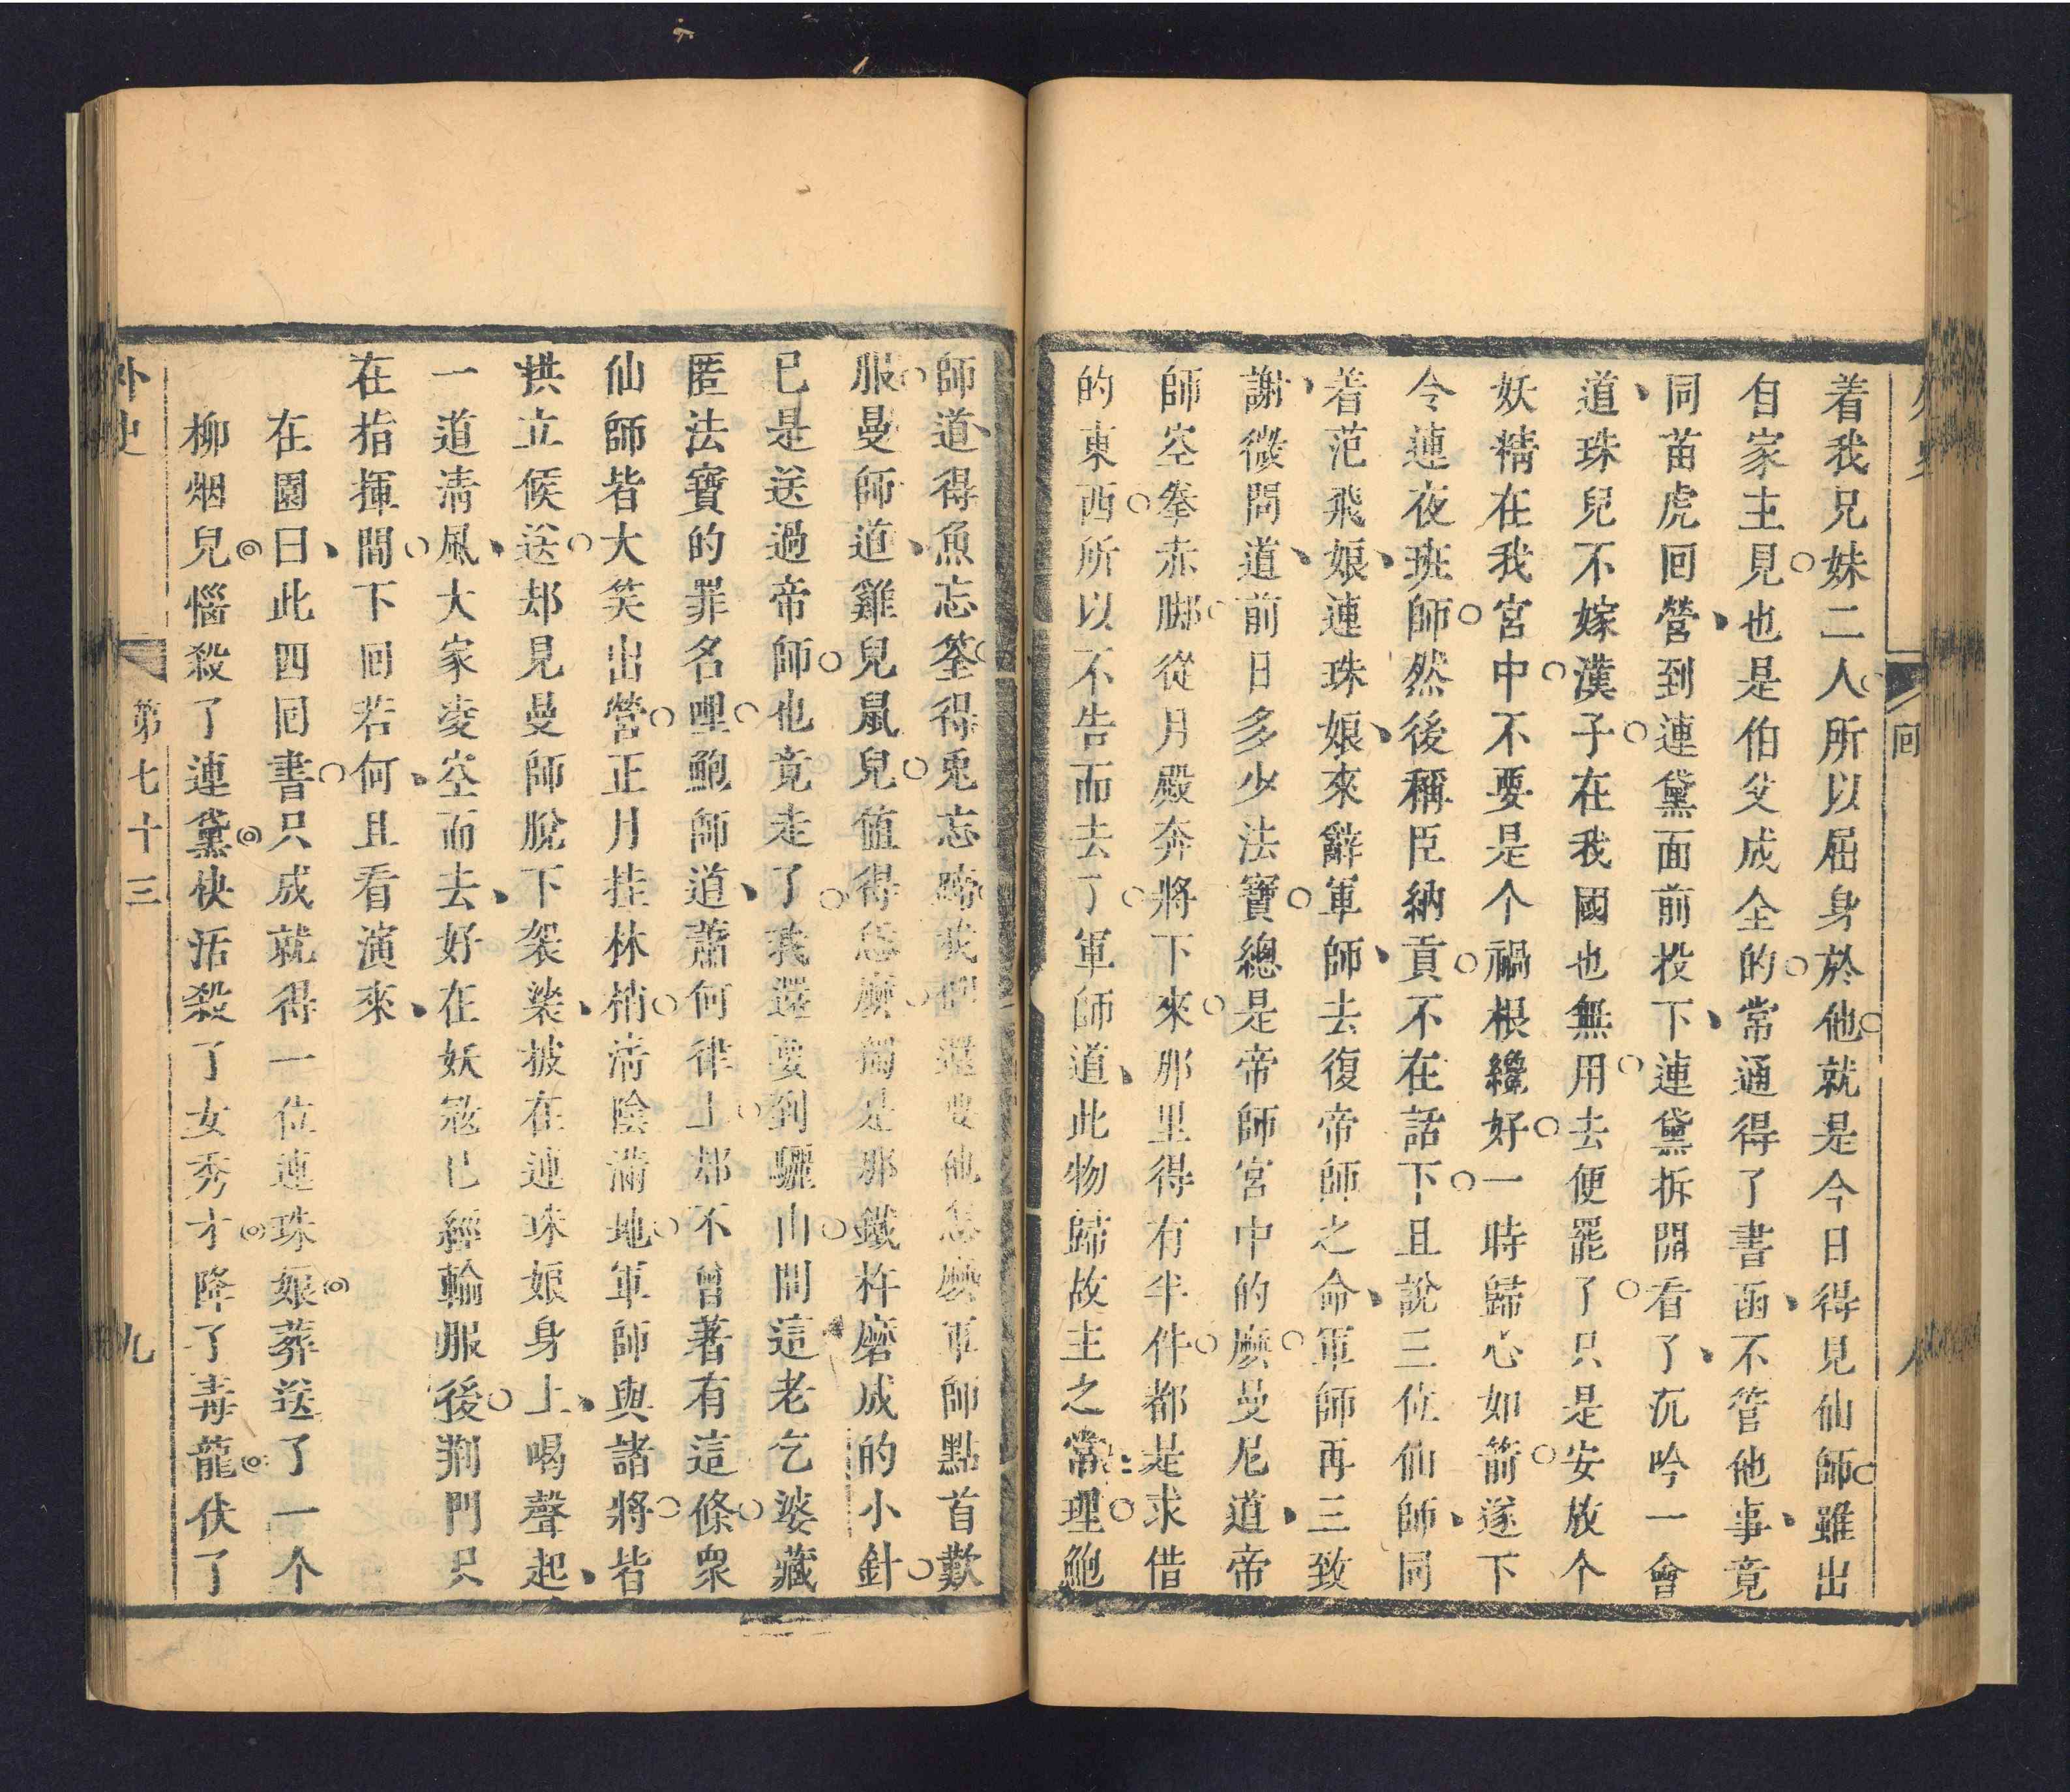 着我兄妹二人所以屈身於他就是今日得見仙師雖出
自家主見也是伯父成全的常通得了書函不管他事竟
同苗虎回營到連黛面前投下連黛拆開看了沉吟一會
道珠兒不嫁漢子在我國也無用去便罷了只是安放个
妖精在我宮中不要是个禍根纔好一時歸心如箭遂下
令連夜班師然後稱臣納貢不在話下且說三位仙師同
着范飛娘連珠娘來辭軍師去復帝師之命軍師再三致
謝微問道前日多少法寶總是帝師宮中的麼曼尼道帝
師空拳赤脚從月殿奔將下來那里得有半件都是求借
的東西所以不告而去了軍師道此物歸故主之常理鮑
師道得魚忘筌得兎忘蹄我們還要他怎麽軍師點首歎
服曼師道雞兒鼠兒值得怎麽獨是那鐵杵磨成的小針
已是送過帝師也竟走了我還要到驪山問這老乞婆藏
匿法寶的罪名哩鮑師道蕭何律上却不曾著有這條衆
仙師皆大笑出營正月挂林梢清陰滿地軍師與諸將皆
拱立候送却見曼師脫下袈裟披在連珠娘身上喝聲起
一道清風大家凌空而去好在妖冦已經輸服後荆門只
在指揮間下回若何且看演來
在園曰此四回書只成就得一位連珠娘葬送了一个
柳烟兒惱殺了連黛快活殺了女秀才降了毒龍伏了
外史
第七十三
九
回
八